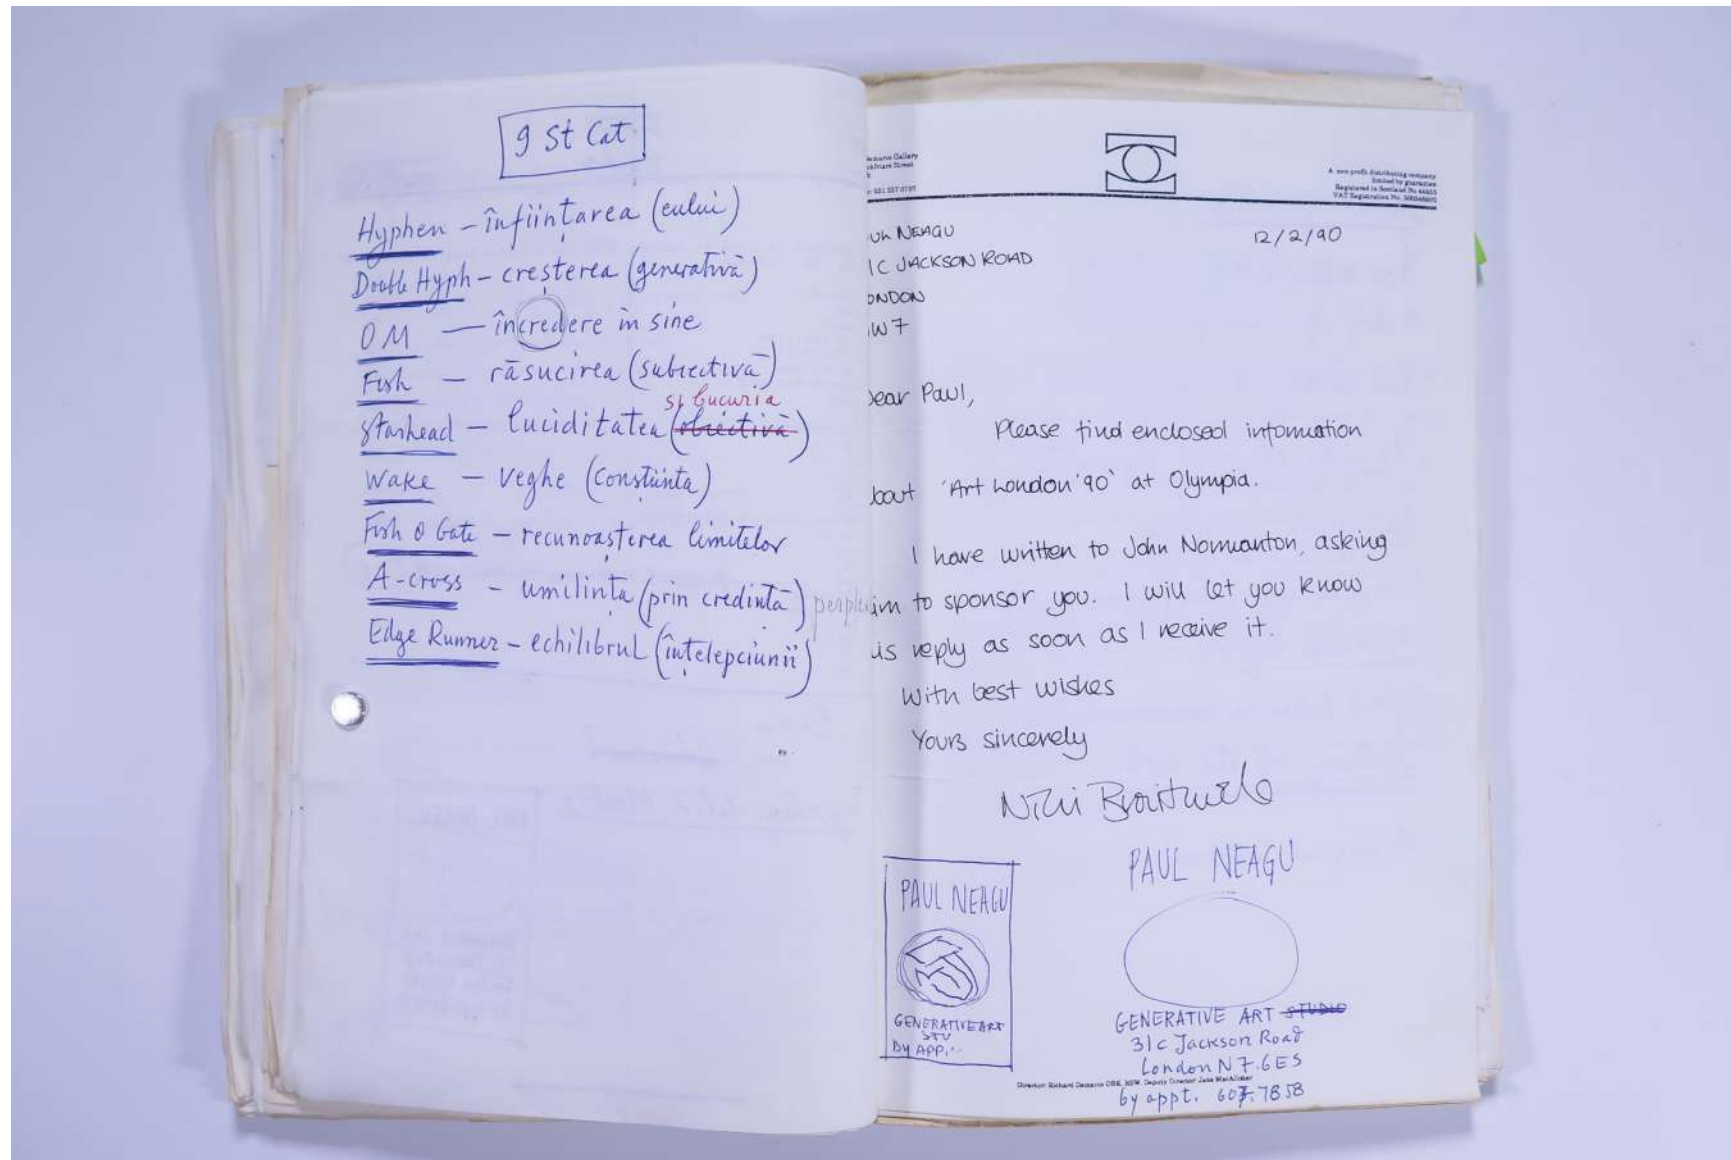 9 St Cat
Hyphen – înființarea (eului)
Double Hyph – creșterea (generativă)
OM — încredere în sine
Fish – răsucirea (subiectivă)
și bucuria
Starhead – luciditatea (obiectivă)
Wake – veghe (Conștiința)
Fish & Gate – recunoașterea limitelor
A-cross – umilința (prin credință)
Edge Runner – echilibrul (înțelepciunii)
Demarco Gallery
A non profit distributing company
limited by guarantee
Registered in Scotland No
VAT Registration No.
12/2/90
UL NEAGU
1C JACKSON ROAD
ONDON
W7
ear Paul,
Please find enclosed information
bout 'Art London '90' at Olympia.
I have written to John Normanton, asking
im to sponsor you. I will let you know
is reply as soon as I receive it.
With best wishes
Yours sincerely
PAUL NEAGU
GENERATIVE ART STUDIO
31c Jackson Road
London N7.6ES
by appt. 607.7858
PAUL NEAGU
GENERATIVE ART
STU
By APP.
Director: Richard Demarco OBE, RSW. Deputy Director Jane MacAllister